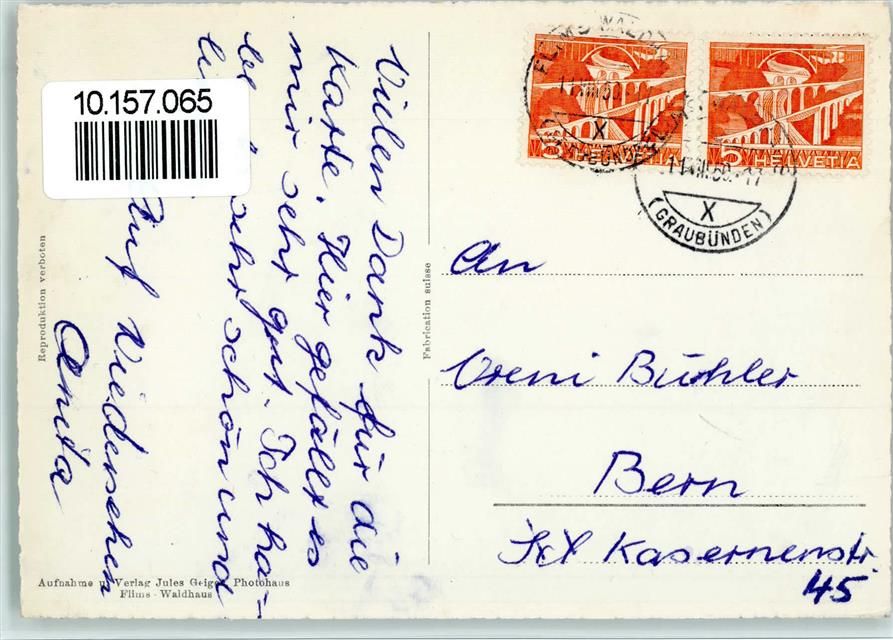 10.157.065
Vielen Dank für die
Karte. Hier gefällt es
mir sehr gut. Ich ha-
be sehr schön und
Auf Wiedersehen
Anita
Reproduktion verboten
Fabrication suisse
Aufnahme u. Verlag Jules Geiger, Photohaus
Flims-Waldhaus
5 HELVETIA
5 HELVETIA
X
X
(GRAUBÜNDEN)
An
Vreni Bühler
Bern
Kasernenstr.
45